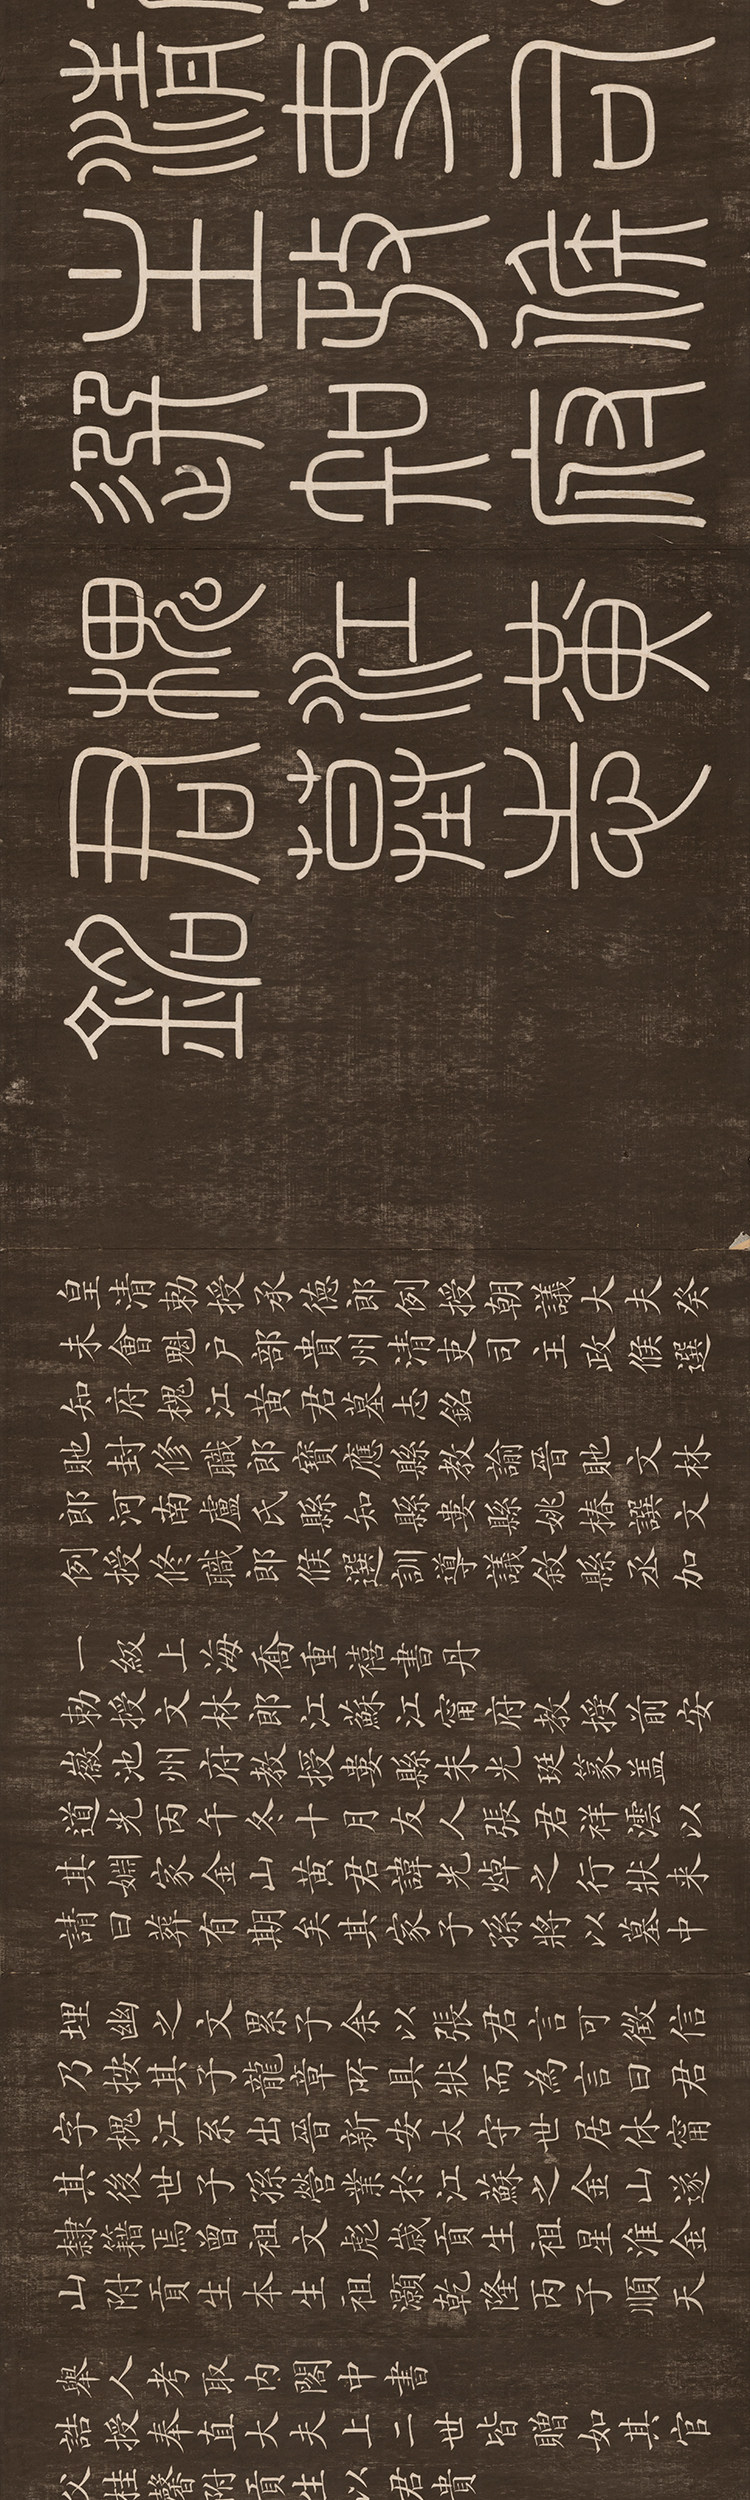 清吏司
主政候
選知府
槐江黃
君墓志
銘
皇清勅授承德郎例授朝議大夫癸
未會魁戶部貴州清吏司主政候選
知府槐江黃君墓志銘
貤封修職郎寶應縣教諭晉貤文林
郎河南盧氏縣知縣婁縣姚椿譔文
例授修職郎候選訓導議敘縣丞加
一級上海喬重禧書丹
勅授文林郎江蘇江甯府教授前安
徽池州府教授婁縣朱光珽篆盖
道光丙午冬十月友人張君祥澐以
其婣家金山黃君諱光焯之行狀来
請曰葬有期矣其家子孫將以墓中
埋幽之文累子余以張君言可徵信
乃按其子龍章所具狀而為言曰君
字槐江系出晉新安太守世居休甯
其後世子孫營業於江蘇之金山遂
隸籍焉曾祖文彪歲貢生祖星淮金
山附貢生本生祖灝乾隆丙子順天
舉人考取內閣中書
誥授奉直大夫上二世皆贈如其官
父桂馨附貢生以君貴